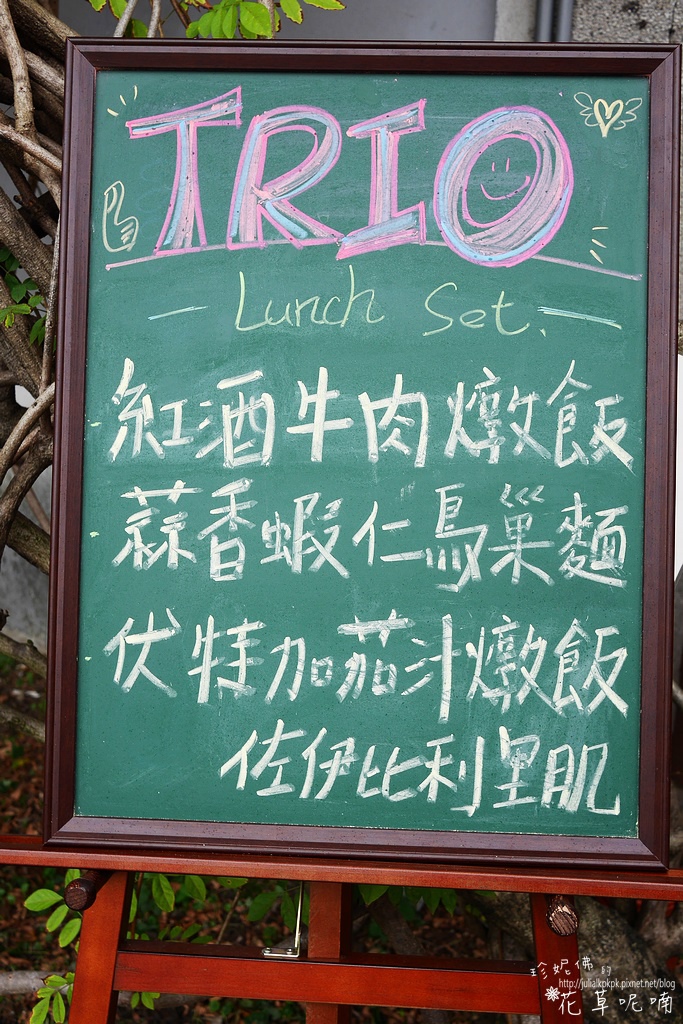 TRIO
Lunch Set.
紅酒牛肉燉飯
蒜香蝦仁鳥巢麵
伏特加茄汁燉飯
佐伊比利里肌
珍妮佛的
http://julialkpkpk.pixnet.net/blog
花草呢喃